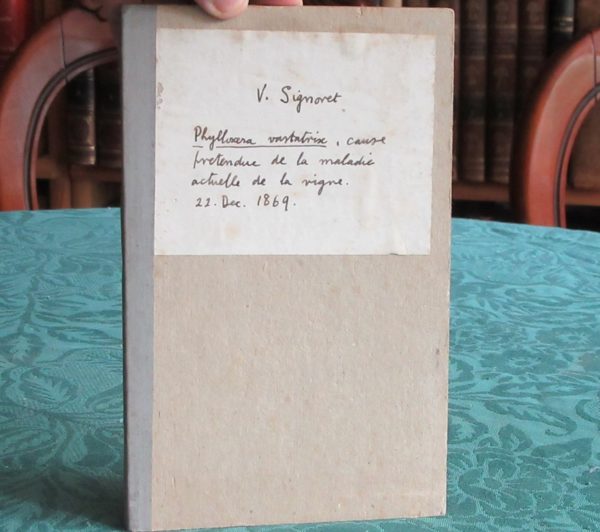 V. Signoret
Phylloxera vastatrix, cause
pretendue de la maladie
actuelle de la vigne.
22. Dec. 1869.